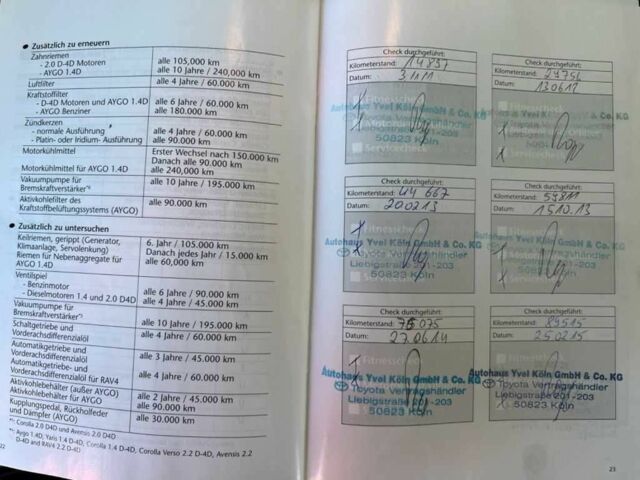 ● Zusätzlich zu erneuern
Zahnriemen
- 2.0 D-4D Motoren alle 105,000 km
- AYGO 1.4D alle 10 Jahre / 240,000 km
Luftfilter alle 4 Jahre / 60.000 km
Kraftstoffilter
- D-4D Motoren und AYGO 1.4D alle 6 Jahre / 60.000 km
- AYGO Benziner alle 180.000 km
Zündkerzen
- normale Ausführung alle 4 Jahre / 60.000 km
- Platin- oder Iridium- Ausführung alle 90.000 km
Motorkühlmittel Erster Wechsel nach 150.000 km
Danach alle 90.000 km
Motorkühlmittel für AYGO 1.4D) 240,000 km
Vakuumpumpe für alle 10 Jahre / 195.000 km
Bremskraftverstärker*²
Aktivkohlefilter des alle 90.000 km
Kraftstoffbelüftungssystems (AYGO)
● Zusätzlich zu untersuchen
Keilriemen, gerippt (Generator, 6. Jahr / 105.000 km
Klimaanlage, Servolenkung) Danach jedes Jahr / 15.000 km
Riemen für Nebenaggregate für alle 60,000 km
AYGO 1.4D
Ventilspiel
- Benzinmotor alle 6 Jahre / 90.000 km
- Dieselmotoren 1.4 und 2.0 D4D alle 4 Jahre / 45.000 km
Vakuumpumpe für
Bremskraftverstärker*¹ alle 10 Jahre / 195.000 km
Schaltgetriebe und alle 4 Jahre / 60.000 km
Vorderachsdifferenzialöl
Automatikgetriebe und alle 3 Jahre / 45.000 km
Vorderachsdifferenzialöl
Automatikgetriebe- und alle 4 Jahre / 60.000 km
Vorderachsdifferenzialöl für RAV4
Aktivkohlebehälter (außer AYGO) alle 2 Jahre / 45.000 km
Aktivkohlebehälter für AYGO alle 90.000 km
Kupplungspedal, Rückholfeder alle 30.000 km
und Dämpfer (AYGO)
Corolla 2.0 D4D und Avensis 2.0 D4D
Aygo 1.4D, Yaris 1.4 D-4D, Corolla 1.4 D-4D, Corolla Verso 2.2 D-4D, Avensis 2.2
D-4D and RAV4 2.2 D-4D
22
Check durchgeführt:
Kilometerstand: 14837
Datum: 3 11 11
Fitnesscheck
Autohaus Yvel Köln GmbH & Co. KG
Toyota Vertragshändler
Liebigstraße 201-203
50823 Köln
Servicecheck
Check durchgeführt:
Kilometerstand: 29756
Datum: 130612
Check durchgeführt:
Kilometerstand: 44 667
Datum: 200213
Autohaus Yvel Köln GmbH & Co. KG
Toyota Vertragshändler
Liebigstraße 201-203
50823 Köln
Check durchgeführt:
Kilometerstand: 59811
Datum: 1510.13
Check durchgeführt:
Kilometerstand: 75 075
Datum: 27.0614
Fitnesscheck
Autohaus Yvel Köln GmbH & Co. KG
Toyota Vertragshändler
Liebigstraße 201-203
50823 Köln
Check durchgeführt:
Kilometerstand: 89515
Datum: 250215
Autohaus Yvel Köln GmbH & Co. KG
Toyota Vertragshändler
Liebigstraße 201-203
50823 Köln
23